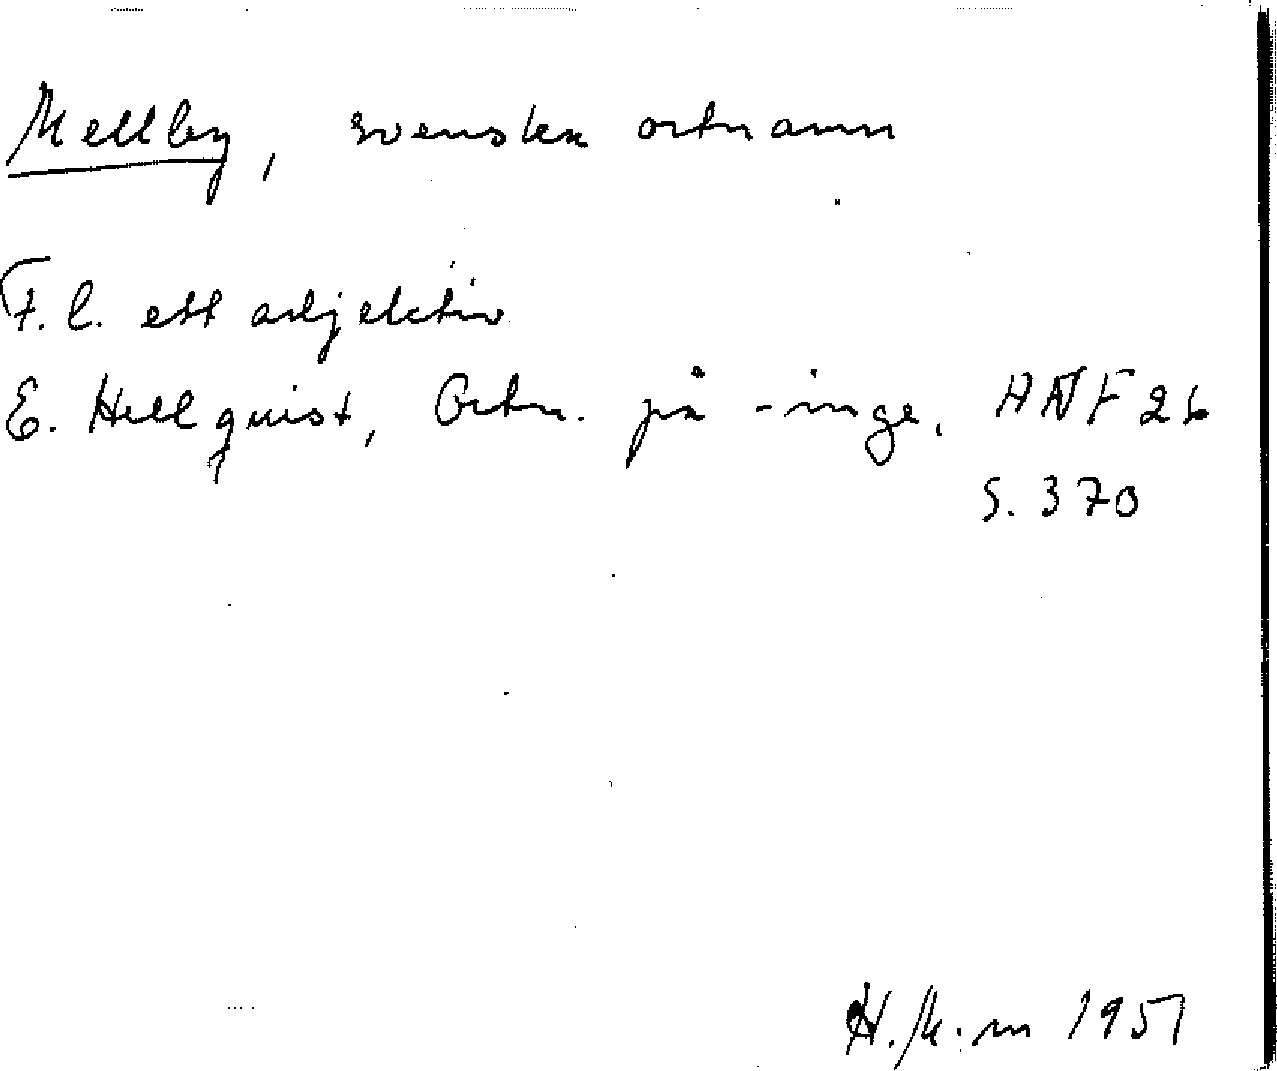 Mellby, svenska ortnamn
F.l. ett adjektiv
E. Hellquist, Ortn. på -inge, ANF 26
S. 370
H. M:m 1957